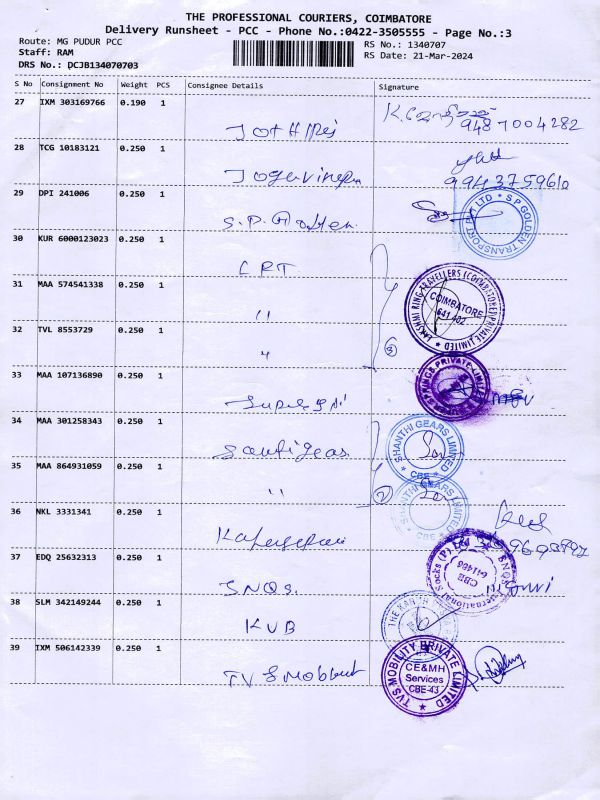 THE PROFESSIONAL COURIERS, COIMBATORE
Delivery Runsheet - PCC - Phone No.:0422-3505555 - Page No.:3
Route: MG PUDUR PCC
Staff: RAM
DRS No.: DCJB134070703
RS No.: 1340707
RS Date: 21-Mar-2024
S No Consignment No Weight PCS Consignee Details Signature
27 IXM 303169766 0.190 1
9487004282
28 TCG 10183121 0.250 1
9943759610
29 DPI 241006 0.250 1
S.P. Golden
S.P GOLDEN TRANSPORT PVT LTD
30 KUR 6000123023 0.250 1
LRT
31 MAA 574541338 0.250 1
"
LAKSHMI RING TRAVELLERS (COIMBATORE) PRIVATE LIMITED
COIMBATORE
641 402
32 TVL 8553729 0.250 1
"
3
33 MAA 107136890 0.250 1
SPRINGS PRIVATE LIMITED
34 MAA 301258343 0.250 1
SHANTHI GEARS LIMITED
CBE
35 MAA 864931059 0.250 1
"
2
SHANTHI GEARS LIMITED
CBE
36 NKL 3331341 0.250 1
37 EDQ 25632313 0.250 1
SNQS
SNQS International Socks (P) Ltd
CBE
641406
38 SLM 342149244 0.250 1
KVB
THE KARUR
39 IXM 506142339 0.250 1
TVS Mobility
TVS MOBILITY PRIVATE LIMITED
CE&MH
Services
CBE-43